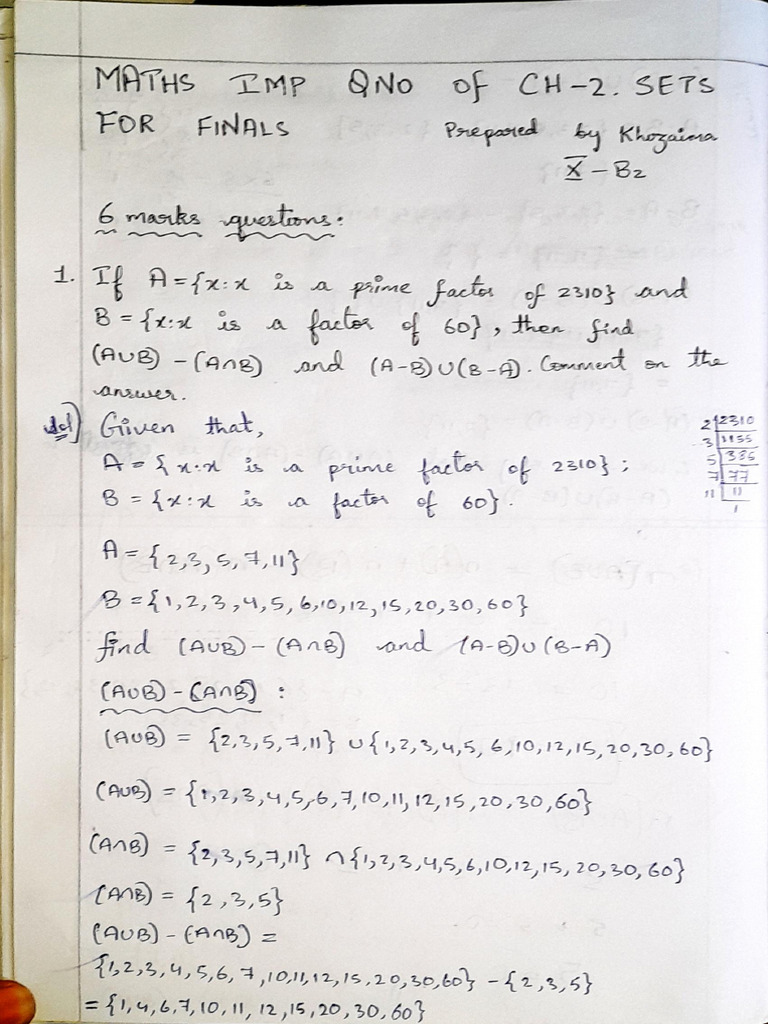 MATHS IMP QNO Of CH-2. SETS
FOR FINALS Prepared by Khozaima
X - B2
6 marks questions:
1. If A = {x:x is a prime factor of 2310} and
B = {x:x is a factor of 60}, then find
(A∪B) - (A∩B) and (A-B)∪(B-A). Comment on the
answer.
Sol) Given that,
A = {x:x is a prime factor of 2310};
B = {x:x is a factor of 60}.
2|2310
3|1155
5|385
7|77
11|11
1
A = {2,3,5,7,11}
B = {1,2,3,4,5,6,10,12,15,20,30,60}
find (A∪B) - (A∩B) and (A-B)∪(B-A)
(A∪B) - (A∩B) :
(A∪B) = {2,3,5,7,11} ∪ {1,2,3,4,5,6,10,12,15,20,30,60}
(A∪B) = {1,2,3,4,5,6,7,10,11,12,15,20,30,60}
(A∩B) = {2,3,5,7,11} ∩ {1,2,3,4,5,6,10,12,15,20,30,60}
(A∩B) = {2,3,5}
(A∪B) - (A∩B) =
{1,2,3,4,5,6,7,10,11,12,15,20,30,60} - {2,3,5}
= {1,4,6,7,10,11,12,15,20,30,60}